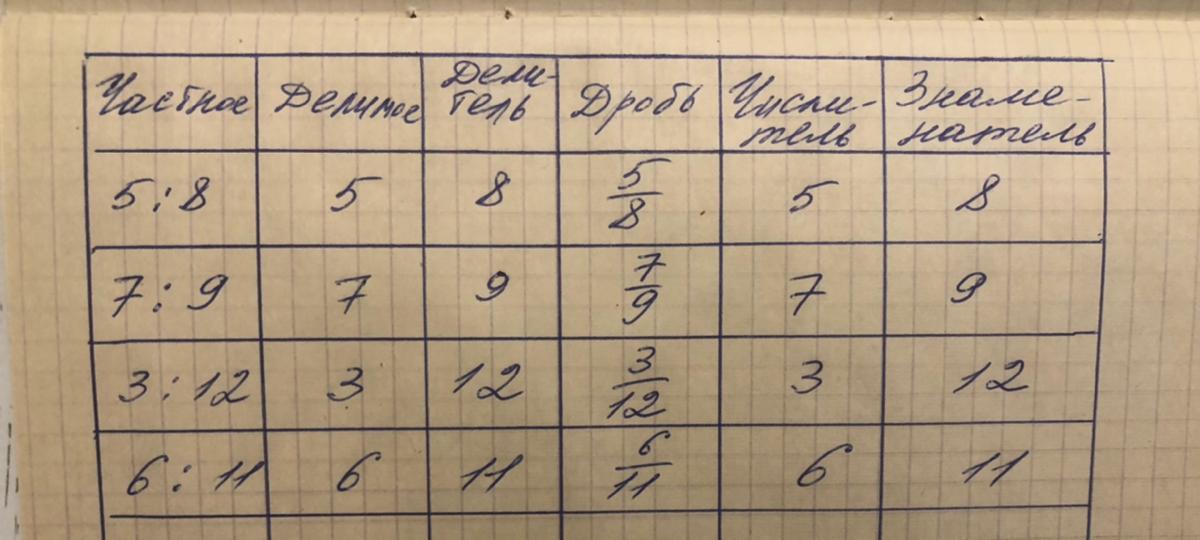 Частное Делимое Дели-
тель Дробь Числи-
тель Знаме-
натель
5:8 5 8 5/8 5 8
7:9 7 9 7/9 7 9
3:12 3 12 3/12 3 12
6:11 6 11 6/11 6 11